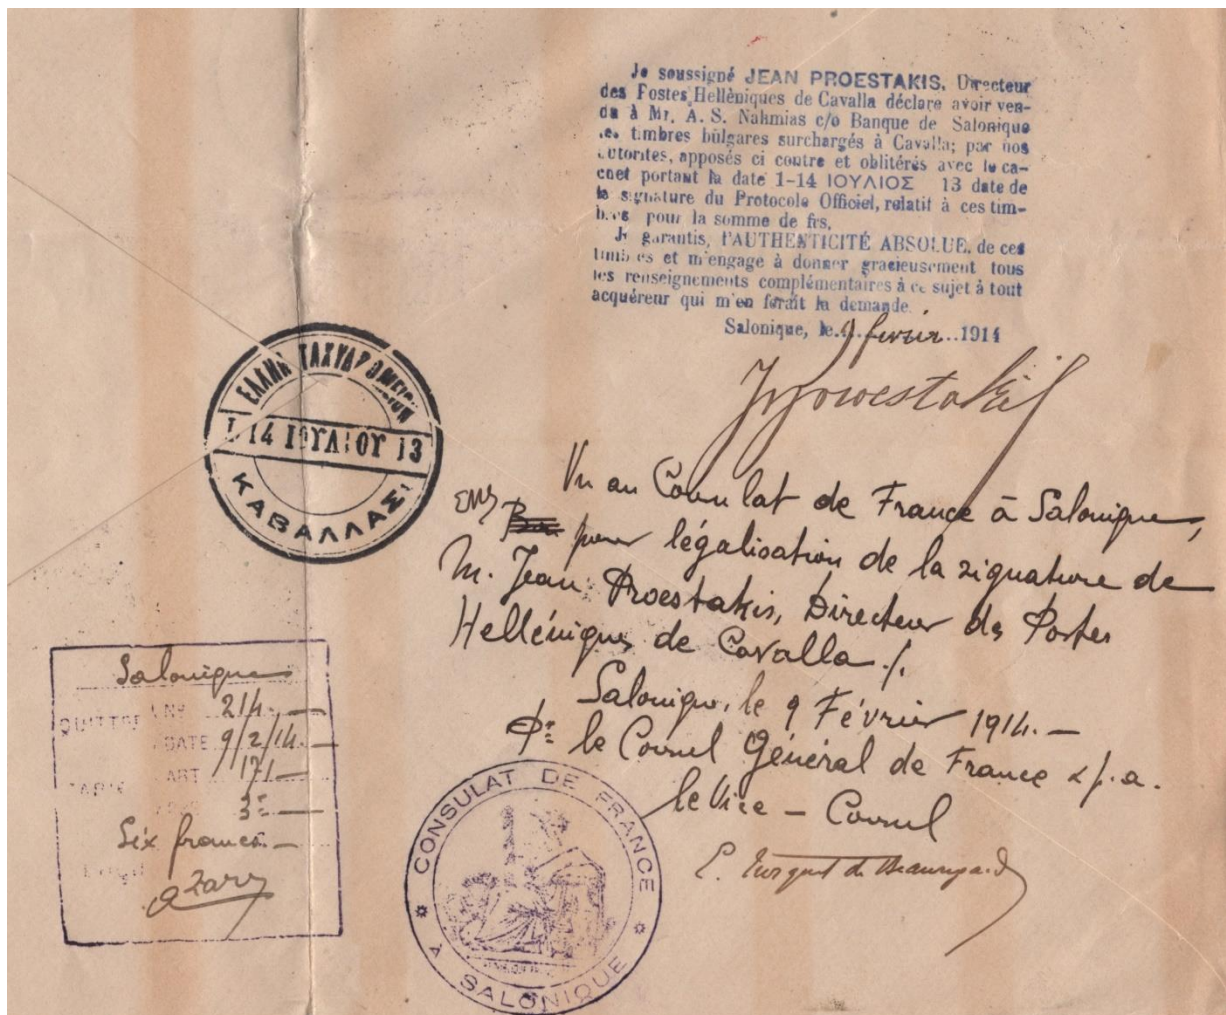 Je soussigné JEAN PROESTAKIS, Directeur
des Postes Hellèniques de Cavalla déclare avoir ven-
du à Mr. A. S. Nahmias c/o Banque de Salonique
les timbres bulgares surchargés à Cavalla; par nos
autorites, apposés ci contre et oblitérés avec le ca-
chet portant la date 1-14 ΙΟΥΛΙΟΣ 13 date de
la signature du Protocole Officiel, relatif à ces tim-
bres pour la somme de frs,
Je garantis, l'AUTHENTICITÉ ABSOLUE, de ces
timbres et m'engage à donner gracieusement tous
les renseignements complémentaires à ce sujet à tout
acquéreur qui m'en ferait la demande.
Salonique, le 9 février 1914
JProestakis
ΕΛΛΗΝ ΤΑΧΥΔΡΟΜΕΙΟΝ
1-14 ΙΟΥΛΙΟΥ 13
ΚΑΒΑΛΛΑΣ
Vu au Consulat de France à Salonique,
pour légalisation de la signature de
M. Jean Proestakis, Directeur des Postes
Helléniques de Cavalla ./.
Salonique, le 9 Février 1914. —
Pr le Consul Général de France
le Vice - Consul
Salonique
QUITTCE No 214. —
DATE 9/2/14. —
TARIF ART 171 —
Six francs. —
CONSULAT DE FRANCE
À SALONIQUE